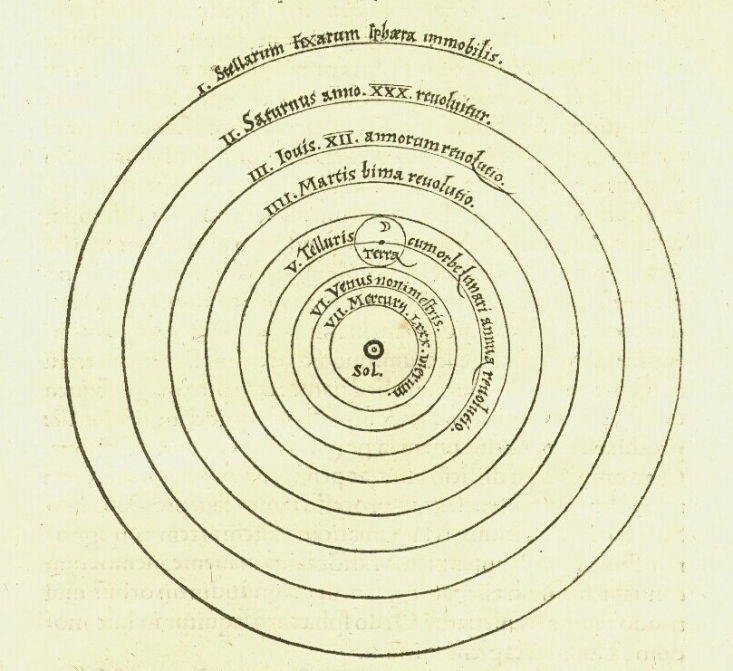 I. Stellarum Fixarum sphæra immobilis.
II. Saturnus anno. XXX. reuoluitur.
III. Iouis. XII. annorum reuolutio.
IIII. Martis bima reuolutio.
V. Telluris cum orbe lunari annua reuolutio.
Terra
VI. Venus nonimestris.
VII. Mercurij. LXXX. dierum.
Sol.